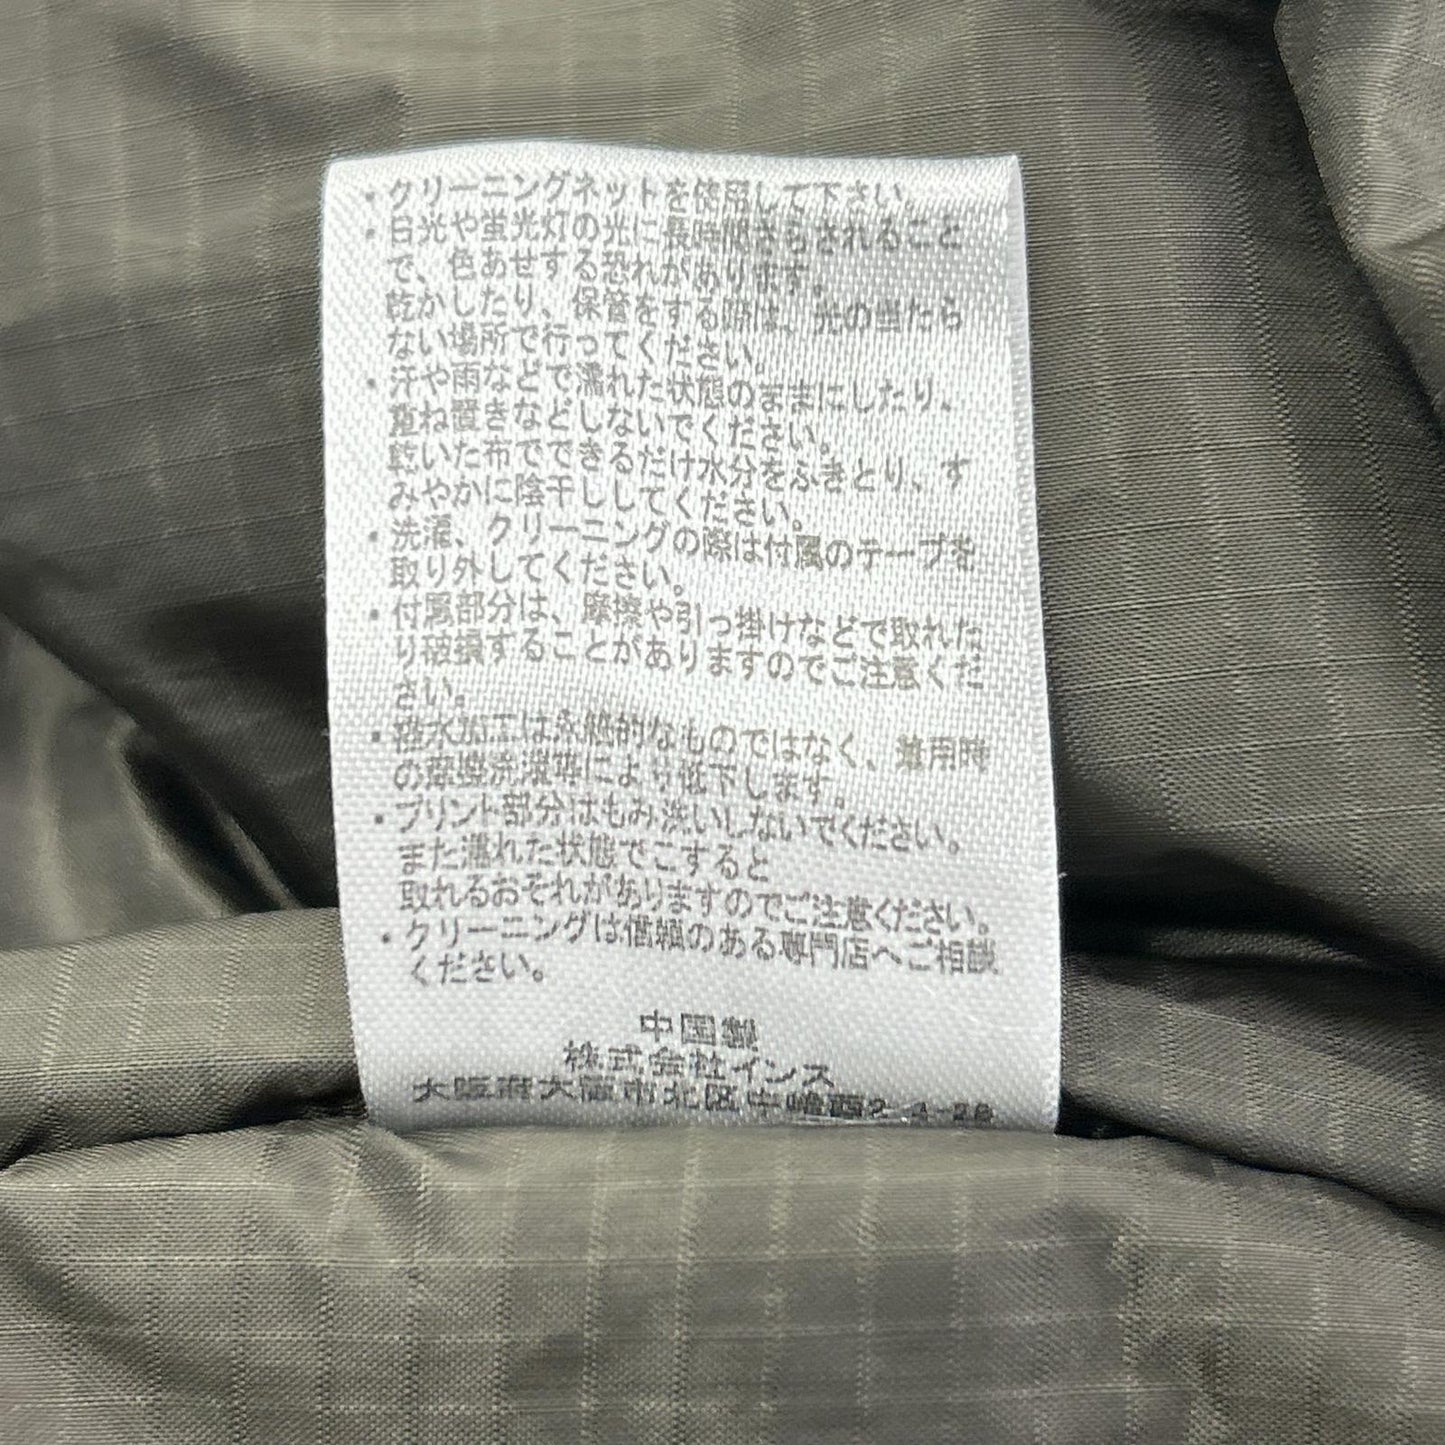 ・クリーニングネットを使用して下さい。
・日光や蛍光灯の光に長時間さらされること
で、色あせする恐れがあります。
乾かしたり、保管をする際は、光の当たら
ない場所で行ってください。
・汗や雨などで濡れた状態のままにしたり、
重ね置きなどしないでください。
乾いた布でできるだけ水分をふきとり、す
みやかに陰干ししてください。
・洗濯、クリーニングの際は付属のテープを
取り外してください。
・付属部分は、摩擦や引っ掛けなどで取れた
り破損することがありますのでご注意くだ
さい。
・撥水加工は永続的なものではなく、着用時
の摩擦洗濯等により低下します。
・プリント部分はもみ洗いしないでください。
また濡れた状態でこすると
取れるおそれがありますのでご注意ください。
・クリーニングは信頼のある専門店へご相談
ください。
中国製
株式会社インス
大阪府大阪市北区中崎西2-4-28